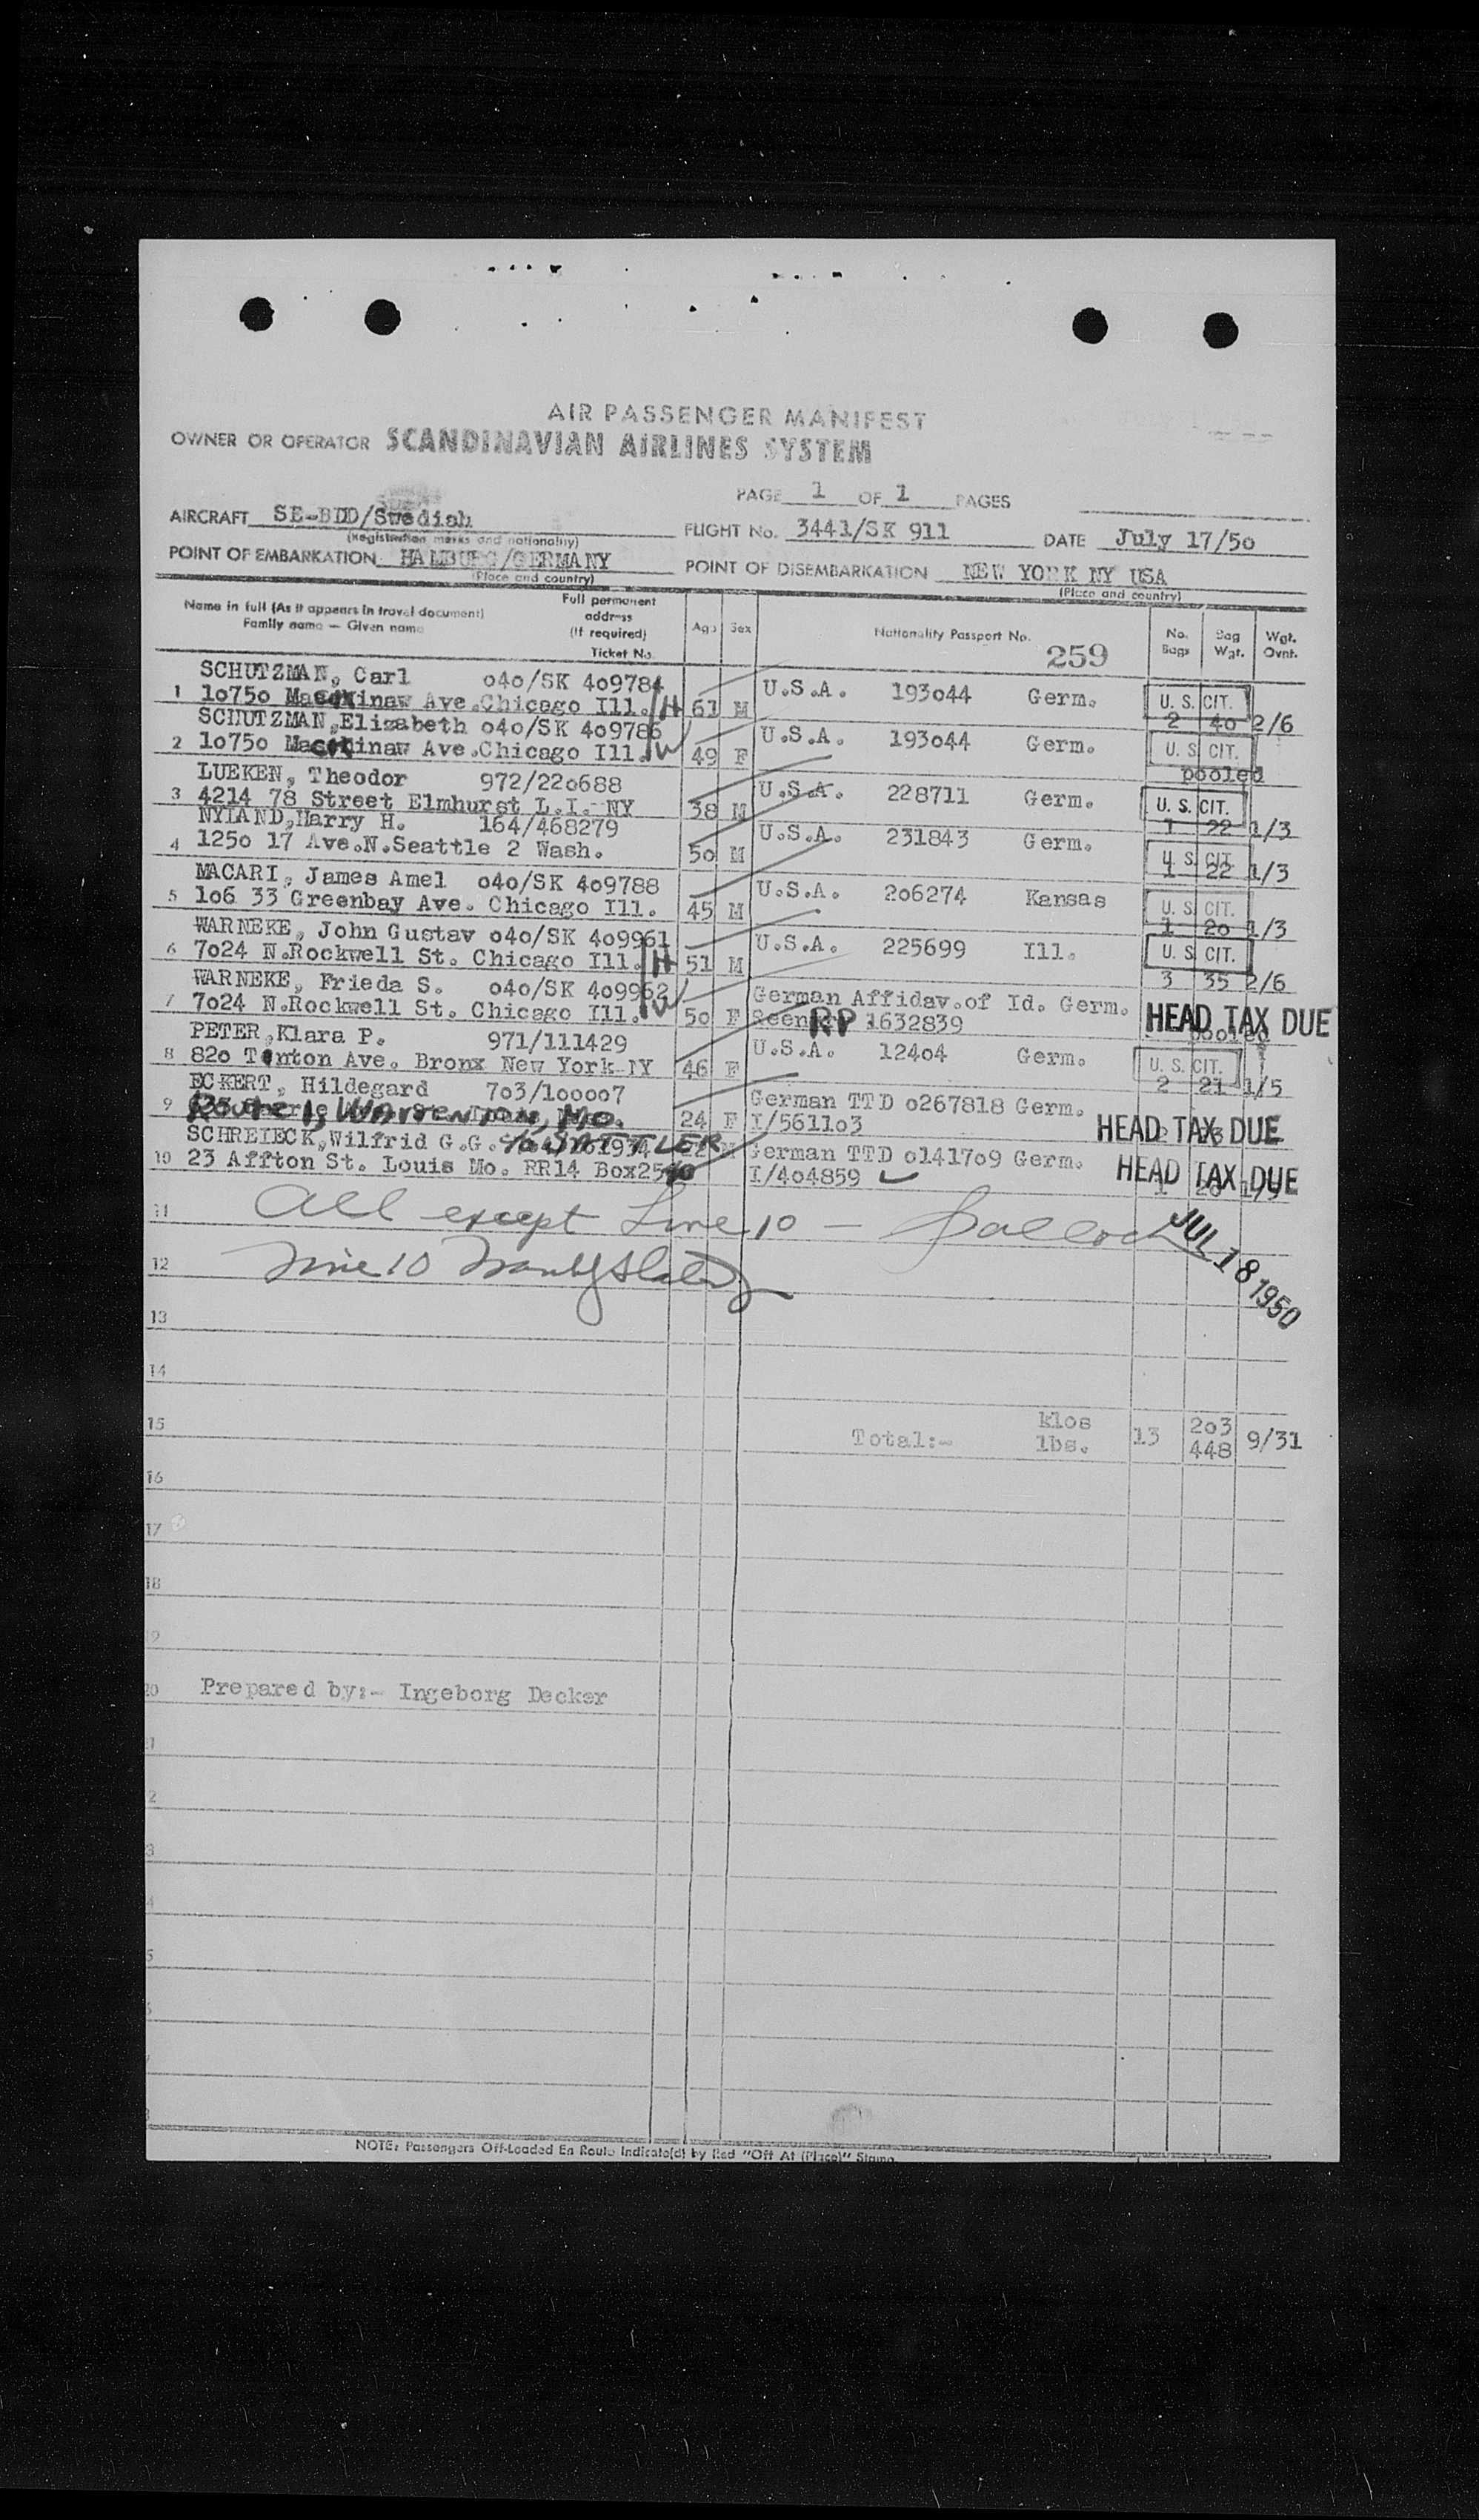 AIR PASSENGER MANIFEST
OWNER OR OPERATOR SCANDINAVIAN AIRLINES SYSTEM
PAGE 1 OF 1 PAGES
AIRCRAFT SE-BDD/Swedish
(Registration marks and nationality)
FLIGHT No. 3441/SK 911 DATE July 17/5o
POINT OF EMBARKATION HAMBURG/GERMANY
(Place and country)
POINT OF DISEMBARKATION NEW YORK NY USA
(Place and country)
Name in full (As it appears in travel document)
Family name — Given name
Full permanent
address
(If required)
Ticket No.
Age Sex Nationality Passport No. No. Bags Bag Wgt. Wgt. Ovnt.
259
SCHUTZMAN, Carl o4o/SK 409784
1 1o75o Mackinaw Ave.Chicago Ill. H 61 M U.S.A. 193o44 Germ. U. S. CIT. 2 4o 2/6
SCHUTZMAN,Elizabeth o4o/SK 409786
2 1o75o Mackinaw Ave.Chicago Ill. W 49 F U.S.A. 193o44 Germ. U. S. CIT. pooled
LUEKEN, Theodor 972/22o688
3 4214 78 Street Elmhurst L.I. NY 38 M U.S.A. 228711 Germ. U. S. CIT. 1 22 1/3
NYLAND,Harry H. 164/468279
4 125o 17 Ave.N.Seattle 2 Wash. 5o M U.S.A. 231843 Germ. U. S. CIT. 1 22 1/3
MACARI, James Amel o4o/SK 409788
5 1o6 33 Greenbay Ave. Chicago Ill. 45 M U.S.A. 2o6274 Kansas U. S. CIT. 1 2o 1/3
WARNEKE, John Gustav o4o/SK 409961
6 7o24 N.Rockwell St. Chicago Ill. H 51 M U.S.A. 225699 Ill. U. S. CIT. 3 35 2/6
WARNEKE, Frieda S. o4o/SK 409962
7 7o24 N.Rockwell St. Chicago Ill. W 5o F German Affidav.of Id. Germ. HEAD TAX DUE
RP 1632839 pooled
PETER,Klara P. 971/111429
8 82o Tinton Ave. Bronx New York NY 46 F U.S.A. 124o4 Germ. U. S. CIT. 2 21 1/5
ECKERT, Hildegard 7o3/1oooo7
9 Route 1, Warrenton, Mo. 24 F German TTD o267818 Germ. HEAD TAX DUE
I/5611o3
SCHREIECK,Wilfrid G.G. c/o SATTLER
10 23 Affton St. Louis Mo. RR14 German TTD o1417o9 Germ. HEAD TAX DUE
I/4o4859
11 All except Line 10 —
JUL 18 1950
12 Line 10
13
14
15 Total:- klos 13 2o3 9/31
lbs. 448
16
17
18
19
20 Prepared by:- Ingeborg Decker
NOTE: Passengers Off-Loaded En Route Indicate(d) by Red "Off At (Place)" Stamp